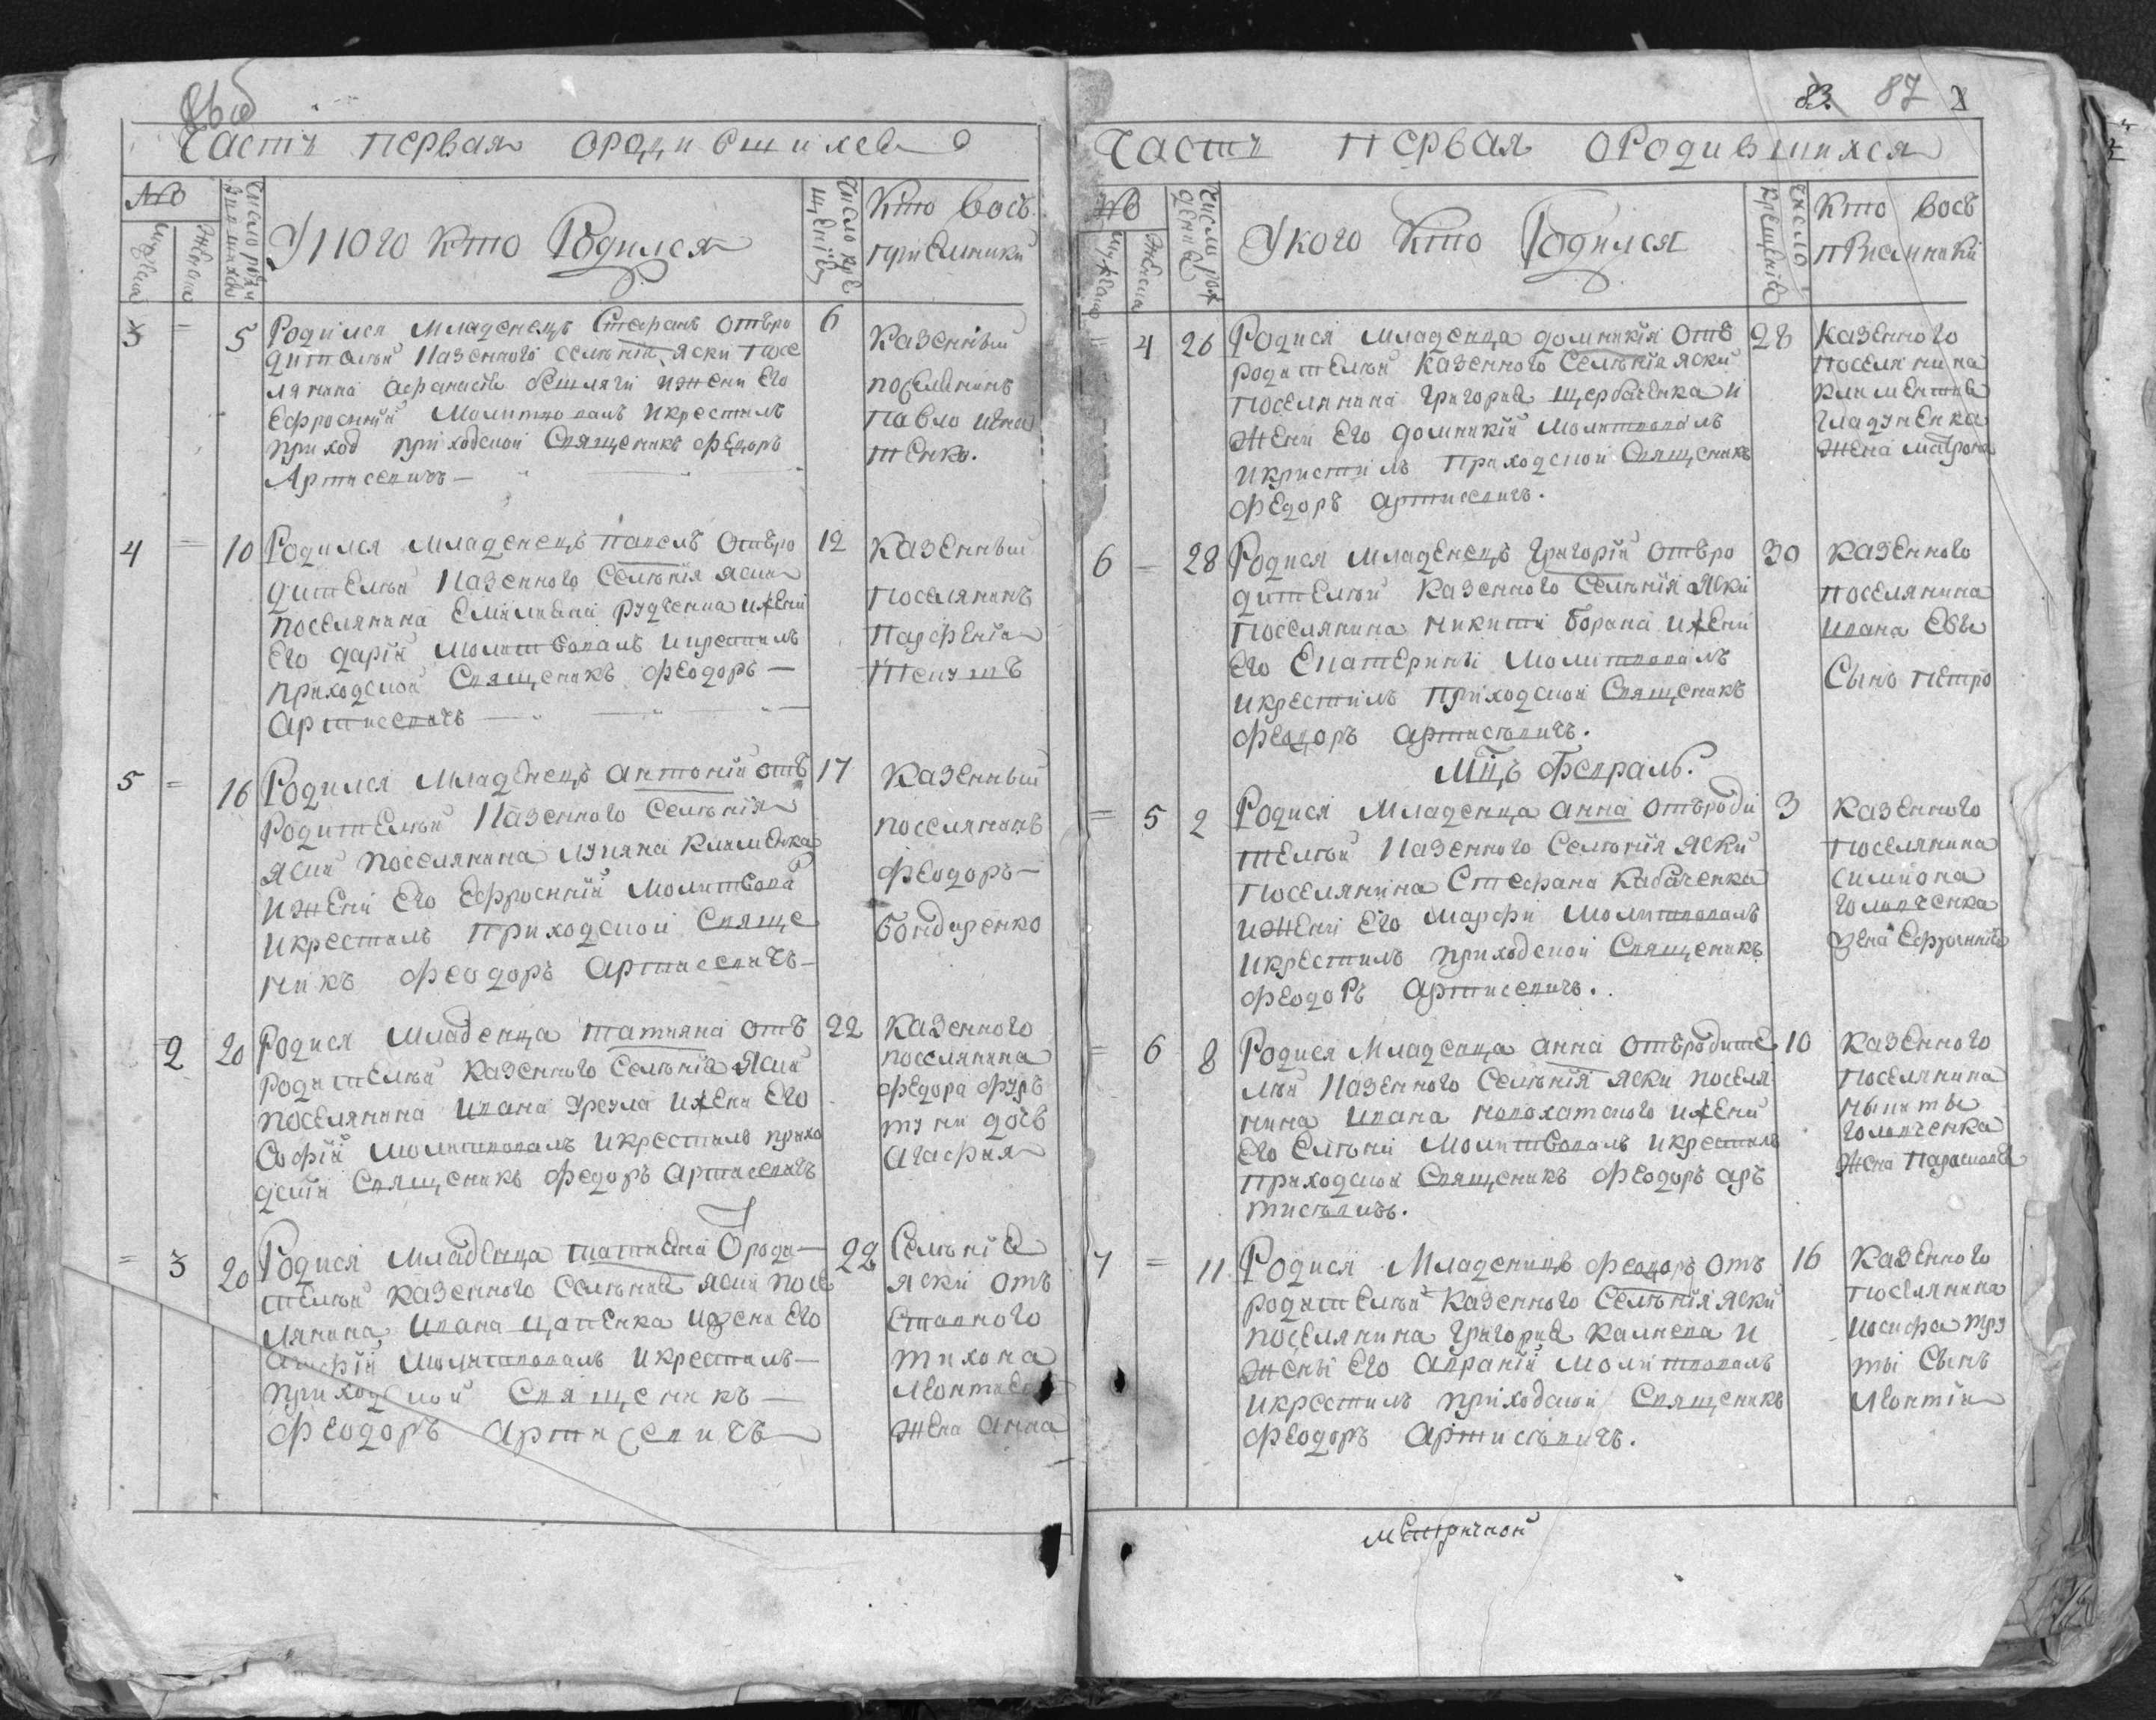 86 об
Часть первая ородившихся
№
мужеска
женска
Число рожд
У кого кто Родился
Число кре
щенія
Кто восъ
пріемники
3 = 5 Родился младенецъ Стефанъ отъро
дителей Казенного селенія яски посе
лянина афанасія бешляги ижени Его
Ефросиніи Молитвовалъ икрестилъ
приход приходской Священикъ Федоръ
Артисевичъ —
6
Казенный
поселянинъ
Павло игна
тенко.
4 = 10 Родился младенецъ павелъ отъро
дителей Казенного Селенія яски
поселянина Емилиана рудченка ижени
Его даріи молитвовалъ икрестилъ
приходской Священикъ феодоръ —
артисевичъ —
12
Казенный
поселянинъ
Парфентій
5 = 16 Родился младенецъ антоній отъ
Родителей Казенного Селенія
яски поселянина лукяна Клименка
ижени Его Ефросиніи молитвова
икрестилъ приходской Свяще
никъ феодоръ артисевичъ —
17
Казенный
поселянинъ
феодоръ —
бондаренко
2 20 Родися младенца татияна отъ
Родителей казенного селенія яски
поселянина ивана урсула ижени Его
Софіи молитвовалъ икрестилъ прихо
дский Священикъ федоръ артисевичъ
22
Казенного
поселянина
федора фур
туни дочь
агафия
= 3 20 Родися младенца татияна Ѿроди —
телей казенного селения яски посе
лянина ивана цапенка ижени Его
агафіи молитвовалъ икрестилъ —
приходской Священикъ —
феодоръ артисевичъ
22
Селенія
яски отъ
ставного
тихона
Леонтиева
жена анна
83. 87
Часть первая ородившихся
№
мужеска
женска
Число рож
денія
У кого кто Родился
Число
крещенія
Кто восъ
пріемники
= 4 26 Родися младенца домникія отъ
родителей казенного Селенія яски
поселянина григория щербаченка и
жени Его домникіи молитвовалъ
икристилъ приходской Священикъ
федоръ артисевичъ.
28
казенного
поселянина
климентия
гладченка
жена матрона
6 = 28 Родися младенецъ григорій отъро
дителей казенного Селенія яски
поселянина никити борана ижени
Его Екатерины молитвовалъ
икрестилъ приходской Священикъ
феодоръ артисевичъ.
30
казенного
поселянина
ивана Евы
Сынъ петро
Мцъ февраль.
= 5 2 Родися младенца анна отъроди
телей Казенного Селенія яски
поселянина Стефана Кабаченка
ижени Его марфи молитвовалъ
икрестилъ приходской Священикъ
феодоръ артисевичъ.
3
казенного
поселянина
симиона
головченка
жена Ефросинія
= 6 8 Родися младенца анна отъродите
лей Казенного Селенія яски поселя
нина ивана новохатского ижени
Его Елены молитвовалъ икрестилъ
приходской Священикъ феодоръ ар
тисевичъ.
10
казенного
поселянина
никиты
головченка
жена параскева
7 = 11 Родися младенецъ феодоръ отъ
родителей казенного Селенія яски
поселянина григория калнева и
жены Его авраніи молитвовалъ
икрестилъ приходской Священикъ
феодоръ артисевичъ.
16
казенного
поселянина
иосифа тру
ты Сынъ
леонтій
метричной